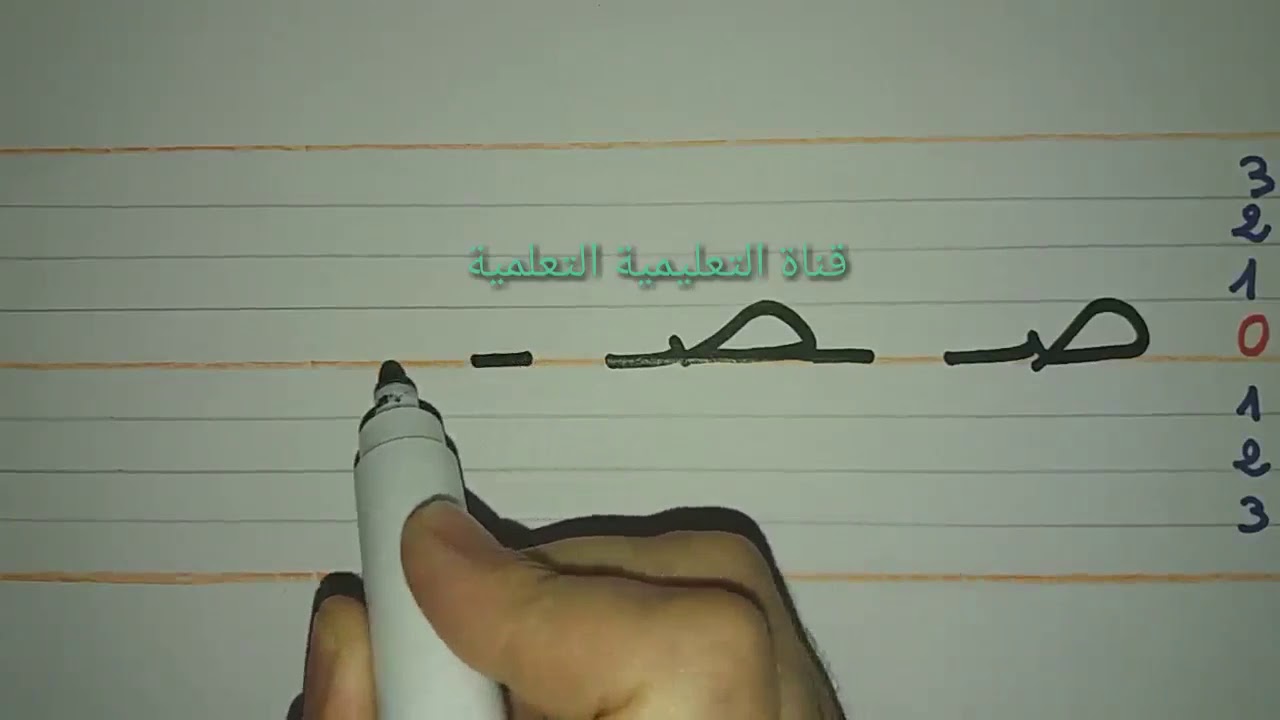 3
2
قناة التعليمية التعلمية
1
صـ ـصـ ـ 0
1
2
3